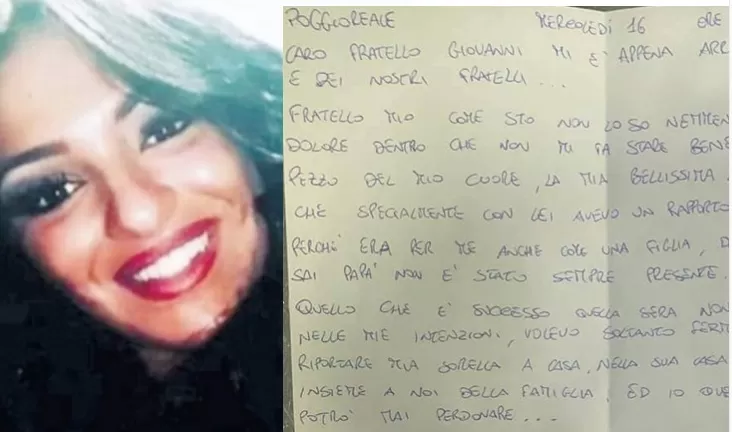 POGGIOREALE MERCOLEDÌ 16 ORE
CARO FRATELLO GIOVANNI MI È APPENA ARR
E DEI NOSTRI FRATELLI...
FRATELLO MIO COME STO NON LO SO NEMMEN
DOLORE DENTRO CHE NON MI FA STARE BENE
PEZZO DEL MIO CUORE, LA MIA BELLISSIMA
CHE SPECIALMENTE CON LEI AVEVO UN RAPPORTO
PERCHÉ ERA PER ME ANCHE COME UNA FIGLIA, D
SAI PAPÀ NON È STATO SEMPRE PRESENTE.
QUELLO CHE È SUCCESSO QUELLA SERA NON
NELLE MIE INTENZIONI, VOLEVO SOLTANTO FERM
RIPORTARE MIA SORELLA A CASA, NELLA SUA CASA
INSIEME A NOI DELLA FAMIGLIA. ED IO QUE
POTRÒ MAI PERDONARE...